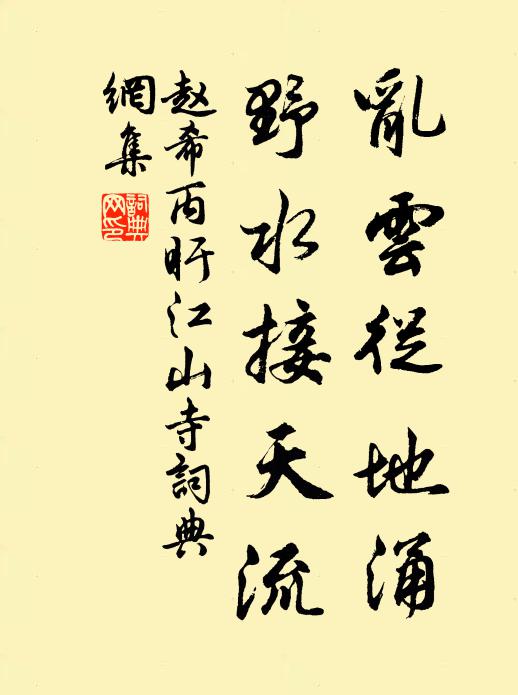 亂雲從地涌
野水接天流
赵希丙盱江山寺詞典
網集
詞典
网印